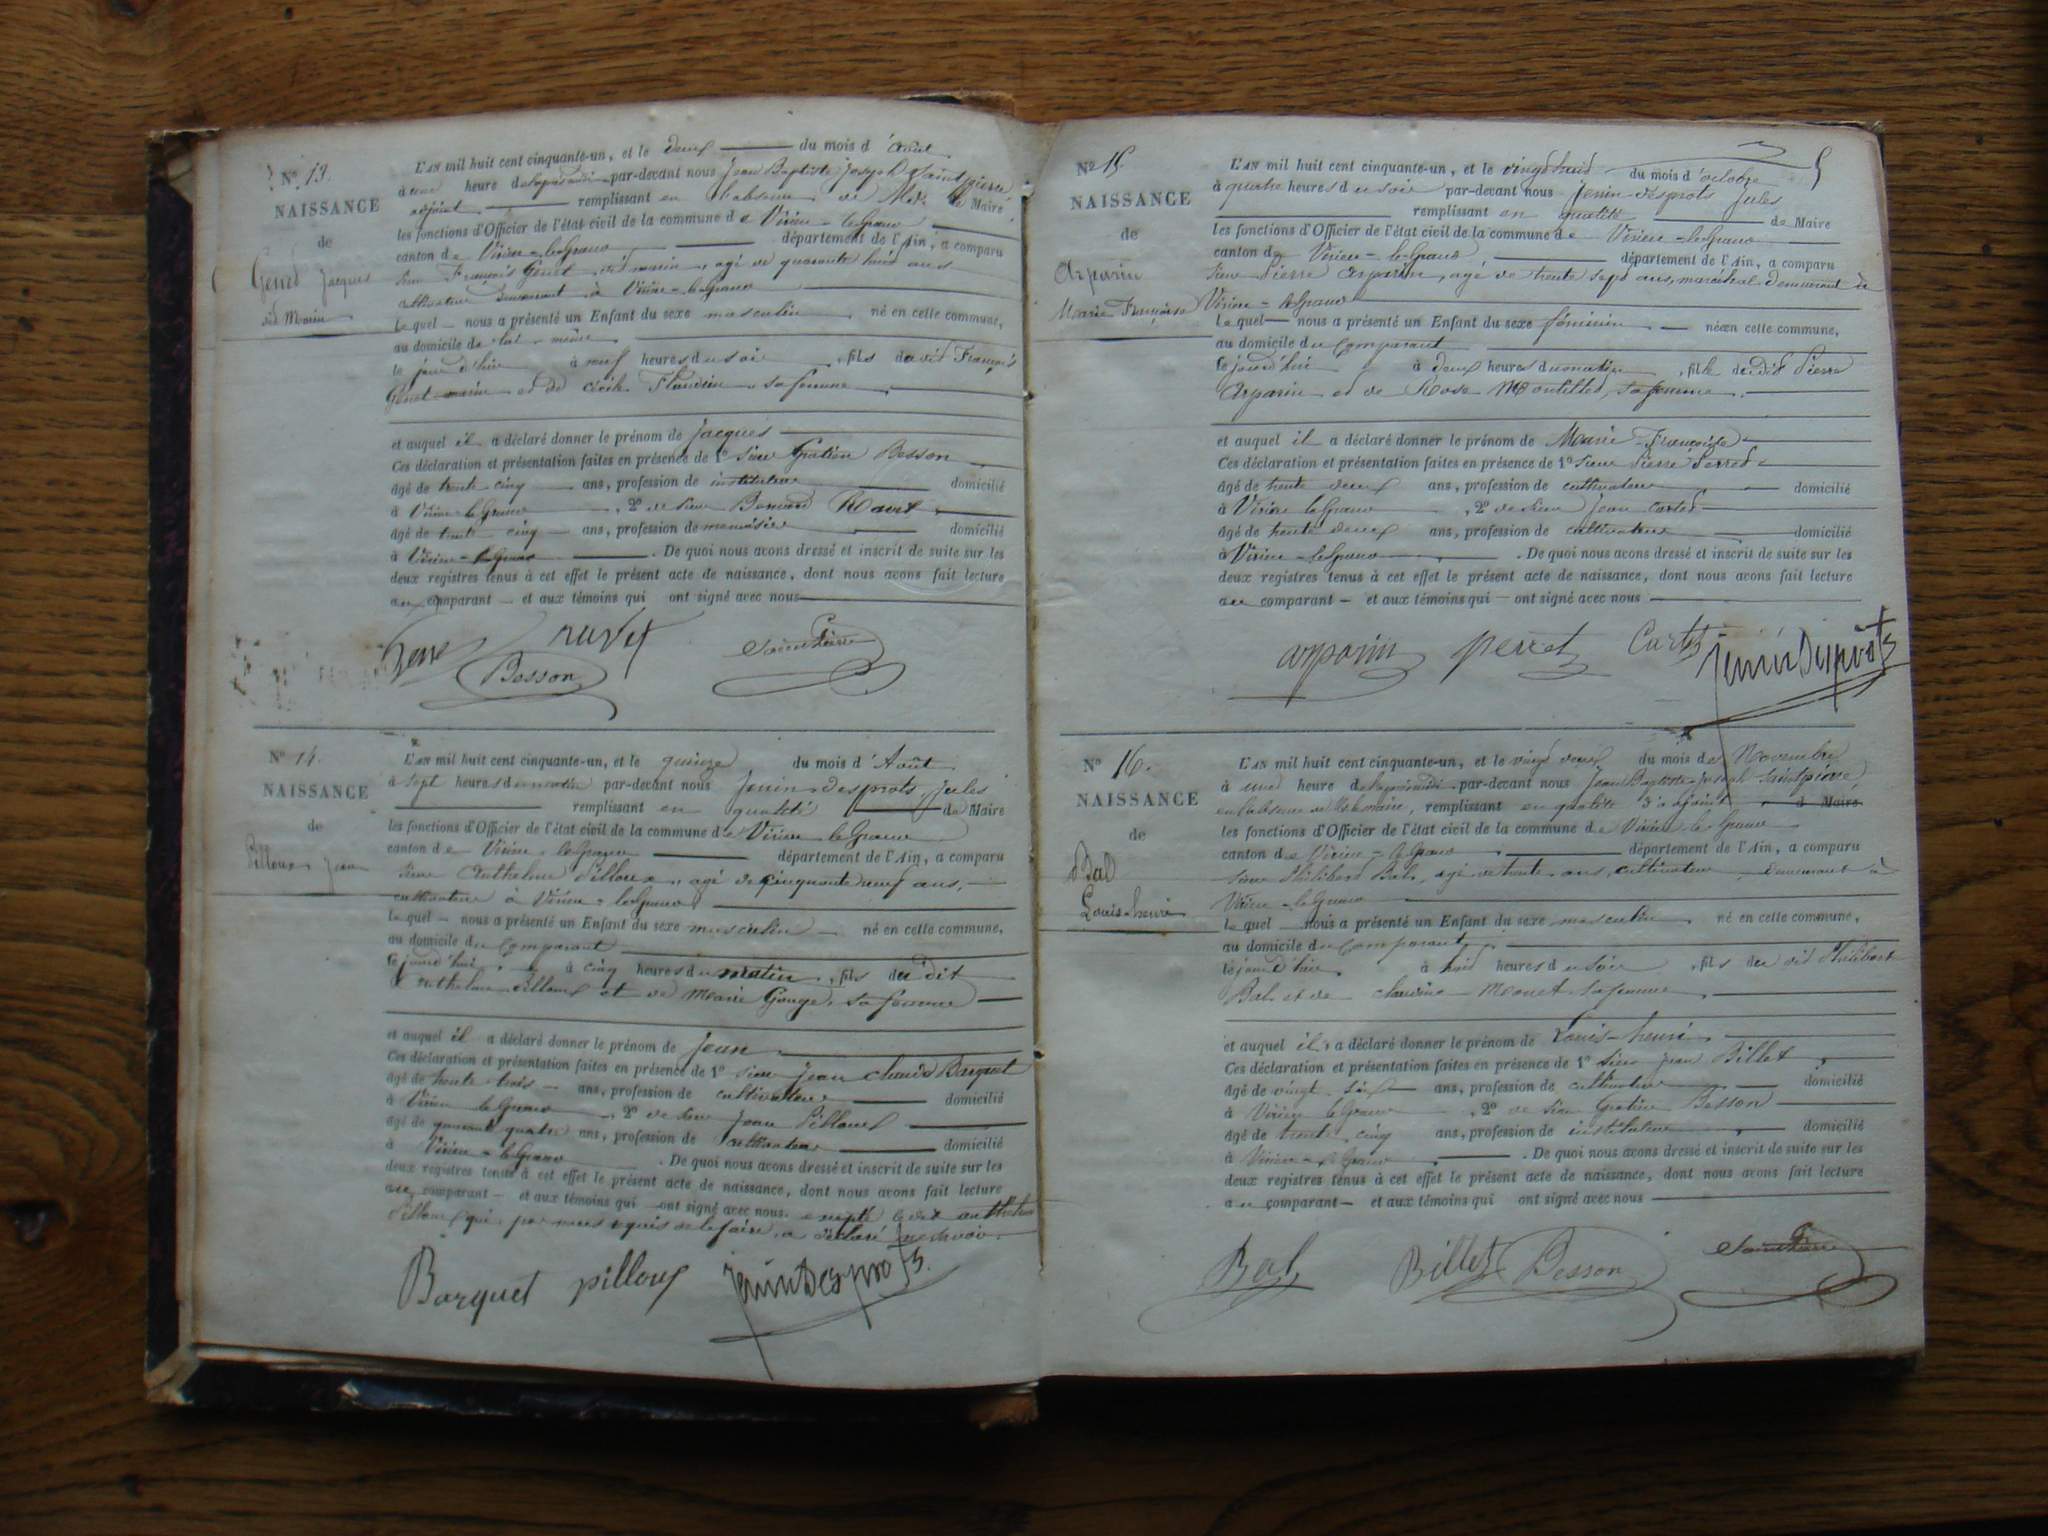 No 13.
NAISSANCE
de
Genod Jacques
dit Marin
L'AN mil huit cent cinquante-un, et le deux du mois d'août
à une heure par-devant nous Jean Baptiste Joseph Saintpierre
adjoint remplissant en l'absence de Mr. le Maire
les fonctions d'Officier de l'état civil de la commune de Virieu-le-Grand
canton de Virieu-le-Grand département de l'Ain, a comparu
sieur François Genet, dit marin, agé de quarante huit ans
cultivateur demeurant à Virieu-le-Grand
Le quel nous a présenté un Enfant du sexe masculin né en cette commune,
au domicile de lui-même
le jour d'hier à neuf heures du soir, fils du dit François
Genet-marin et de Cécile Flaudin, sa femme
et auquel il a déclaré donner le prénom de Jacques
Ces déclaration et présentation faites en présence de 1º sieur Gratien Besson
âgé de trente cinq ans, profession de instituteur domicilié
à Virieu le Grand, 2º de sieur Bernard Ravet
âgé de trente cinq ans, profession de menuisier domicilié
à Virieu-le-Grand. De quoi nous avons dressé et inscrit de suite sur les
deux registres tenus à cet effet le présent acte de naissance, dont nous avons fait lecture
au comparant et aux témoins qui ont signé avec nous
ravet
Besson
SaintPierre
No 14.
NAISSANCE
de
Pilloux Jean
L'AN mil huit cent cinquante-un, et le quinze du mois d'Août
à sept heures du matin par-devant nous Jenin-desprots, Jules
remplissant en qualité de Maire
les fonctions d'Officier de l'état civil de la commune de Virieu le Grand
canton de Virieu-le-Grand département de l'Ain, a comparu
sieur Anthelme Pilloux, agé de cinquante neuf ans,
cultivateur à Virieu-le-Grand
Le quel nous a présenté un Enfant du sexe masculin né en cette commune,
au domicile du comparant
le jourd'hui à cinq heures du matin, fils du dit
Anthelme Pilloux et de Marie Gouge, sa femme
et auquel il a déclaré donner le prénom de Jean
Ces déclaration et présentation faites en présence de 1º sieur Jean Claude Barquet
âgé de trente-trois ans, profession de cultivateur domicilié
à Virieu le Grand, 2º de sieur Jean Pilloux
âgé de quarante quatre ans, profession de cultivateur domicilié
à Virieu-le-Grand. De quoi nous avons dressé et inscrit de suite sur les
deux registres tenus à cet effet le présent acte de naissance, dont nous avons fait lecture
au comparant et aux témoins qui ont signé avec nous. excepté le dit anthelme
Pilloux qui, par nous requis de le faire, a déclaré ne savoir.
Barquet pilloux JeninDesprots
5
No 15.
NAISSANCE
de
Arparin
Marie Françoise
L'AN mil huit cent cinquante-un, et le vingt huit du mois d'octobre
à quatre heures du soir par-devant nous Jenin-desprots Jules
remplissant en qualité de Maire
les fonctions d'Officier de l'état civil de la commune de Virieu-le-Grand
canton de Virieu-le-Grand département de l'Ain, a comparu
sieur Pierre Arparin, agé de trente sept ans, maréchal demeurant à
Virieu-le-Grand
Le quel nous a présenté un Enfant du sexe féminin née en cette commune,
au domicile du comparant
le jourd'hui à deux heures du matin, fille du dit Pierre
Arparin et de Rose Montillet, sa femme
et auquel il a déclaré donner le prénom de Marie-Françoise
Ces déclaration et présentation faites en présence de 1º sieur Pierre Perret
âgé de trente deux ans, profession de cultivateur domicilié
à Virieu le Grand, 2º de sieur Jean Cartet
âgé de trente deux ans, profession de cultivateur domicilié
à Virieu-le-Grand. De quoi nous avons dressé et inscrit de suite sur les
deux registres tenus à cet effet le présent acte de naissance, dont nous avons fait lecture
au comparant et aux témoins qui ont signé avec nous
arparin perret Cartet JeninDesprots
No 16.
NAISSANCE
de
Bal
Louis-henri
L'AN mil huit cent cinquante-un, et le vingt deux du mois de Novembre
à une heure par-devant nous Jean Baptiste-Joseph Saintpierre
en l'absence de Mr le maire, remplissant en qualité d'adjoint d Maire
les fonctions d'Officier de l'état civil de la commune de Virieu le Grand
canton de Virieu-le-Grand département de l'Ain, a comparu
sieur Philibert Bal, agé de trente ans, cultivateur, demeurant à
Virieu-le-Grand
Le quel nous a présenté un Enfant du sexe masculin né en cette commune,
au domicile du comparant
le jour d'hier à huit heures du soir, fils du dit Philibert
Bal et de Claudine Monet sa femme
et auquel il a déclaré donner le prénom de Louis-henri
Ces déclaration et présentation faites en présence de 1º sieur Jean Billet
âgé de vingt-six ans, profession de cultivateur domicilié
à Virieu le Grand, 2º de sieur Gratien Besson
âgé de trente cinq ans, profession de instituteur domicilié
à Virieu-le-Grand. De quoi nous avons dressé et inscrit de suite sur les
deux registres tenus à cet effet le présent acte de naissance, dont nous avons fait lecture
au comparant et aux témoins qui ont signé avec nous
Bal Billet Besson SaintPierre